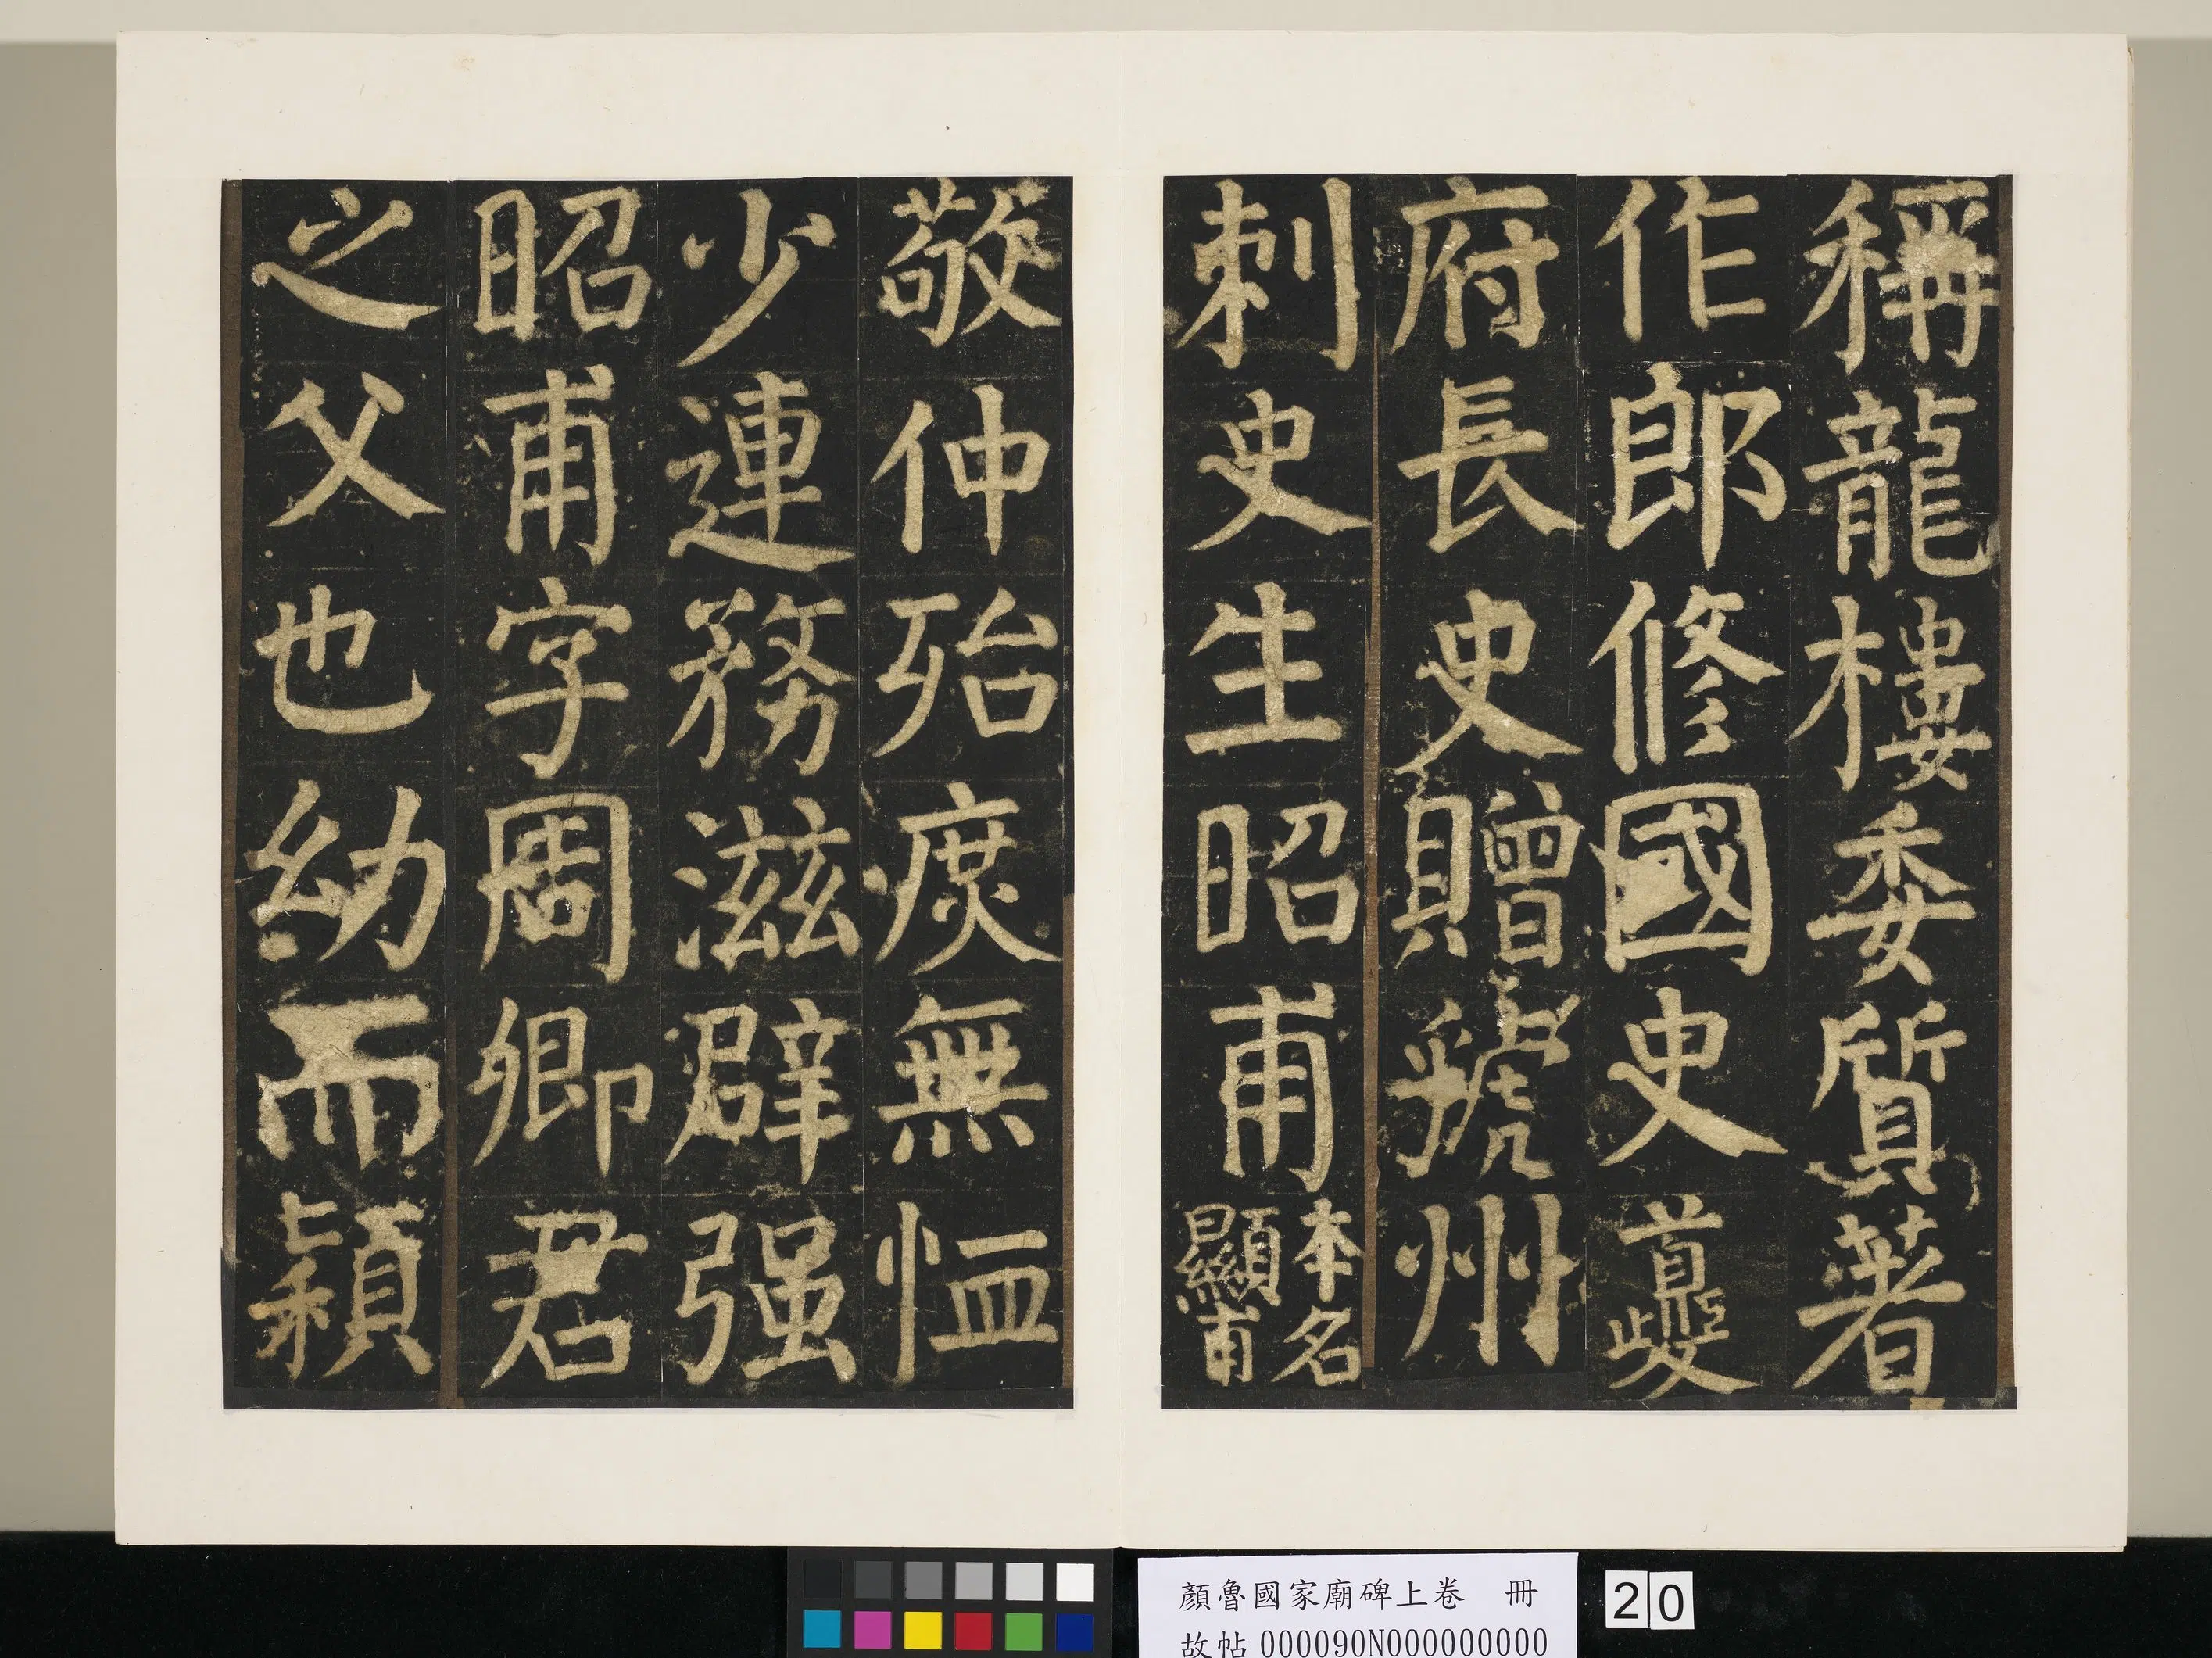 稱龍樓委質著
作郎修國史夔
府長史贈虢州
刺史生昭甫本名
顯甫
敬仲殆庶無恤
少連務滋辟强
昭甫字周卿君
之父也幼而穎
顏魯國家廟碑上卷 冊
故帖000090N000000000
20